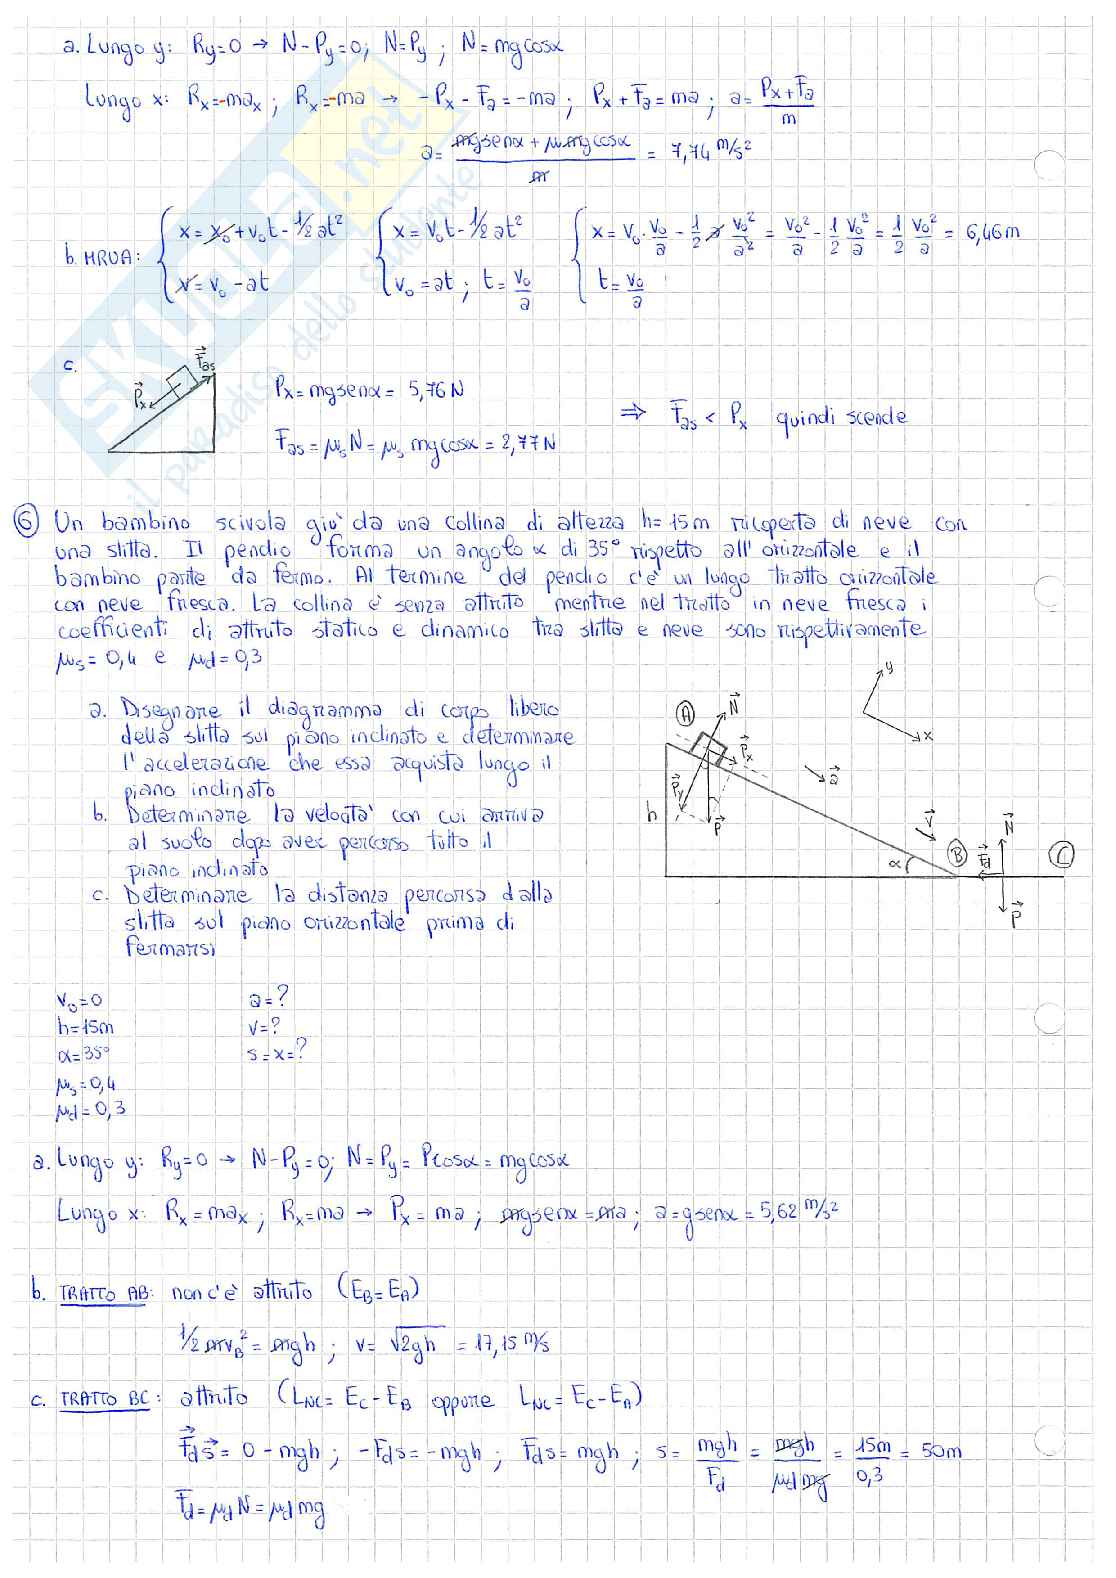 a. Lungo y: Ry=0 → N-Py=0; N=Py ; N=mgcosα
Lungo x: Rx=-max ; Rx=-ma → -Px-Fa=-ma ; Px+Fa=ma ; a=(Px+Fa)/m
a= (mgsenα + μ mgcosα)/m = 7,74 m/s²
b. MRUA: { x=x₀+v₀t-1/2at² { x=v₀t-1/2at² { x=v₀·v₀/a - 1/2 a v₀²/a² = v₀²/a - 1/2 v₀²/a = 1/2 v₀²/a = 6,46m
v=v₀-at v₀=at ; t=v₀/a t=v₀/a
c.
Fas
Px
Px=mgsenα= 5,76N
Fas=μsN=μs mgcosα=2,77N
⇒ Fas < Px quindi scende
6 Un bambino scivola giù da una collina di altezza h=15m ricoperta di neve con
una slitta. Il pendio forma un angolo α di 35° rispetto all'orizzontale e il
bambino parte da fermo. Al termine del pendio c'è un lungo tratto orizzontale
con neve fresca. La collina è senza attrito mentre nel tratto in neve fresca i
coefficienti di attrito statico e dinamico tra slitta e neve sono rispettivamente
μs=0,4 e μd=0,3
a. Disegnare il diagramma di corpo libero
della slitta sul piano inclinato e determinare
l'accelerazione che essa acquista lungo il
piano inclinato
b. Determinare la velocità con cui arriva
al suolo dopo aver percorso tutto il
piano inclinato
c. Determinare la distanza percorsa dalla
slitta sul piano orizzontale prima di
fermarsi
y
x
A
N
Px
Py
P
a
h
v
α
B
Fd
N
P
C
v₀=0 a=?
h=15m v=?
α=35° s=x=?
μs=0,4
μd=0,3
a. Lungo y: Ry=0 → N-Py=0; N=Py=Pcosα=mgcosα
Lungo x: Rx=max ; Rx=ma → Px=ma ; mgsenα=ma ; a=gsenα=5,62 m/s²
b. TRATTO AB: non c'è attrito (EB=EA)
1/2 mvB²=mgh ; v=√2gh = 17,15 m/s
c. TRATTO BC: attrito (LNC=EC-EB oppure LNC=EC-EA)
Fd s= 0-mgh ; -Fds=-mgh ; Fds=mgh ; s= mgh/Fd = mgh/μdmg = 15m/0,3 = 50m
Fd=μdN=μdmg
SKUOLA.net
il paradiso dello studente